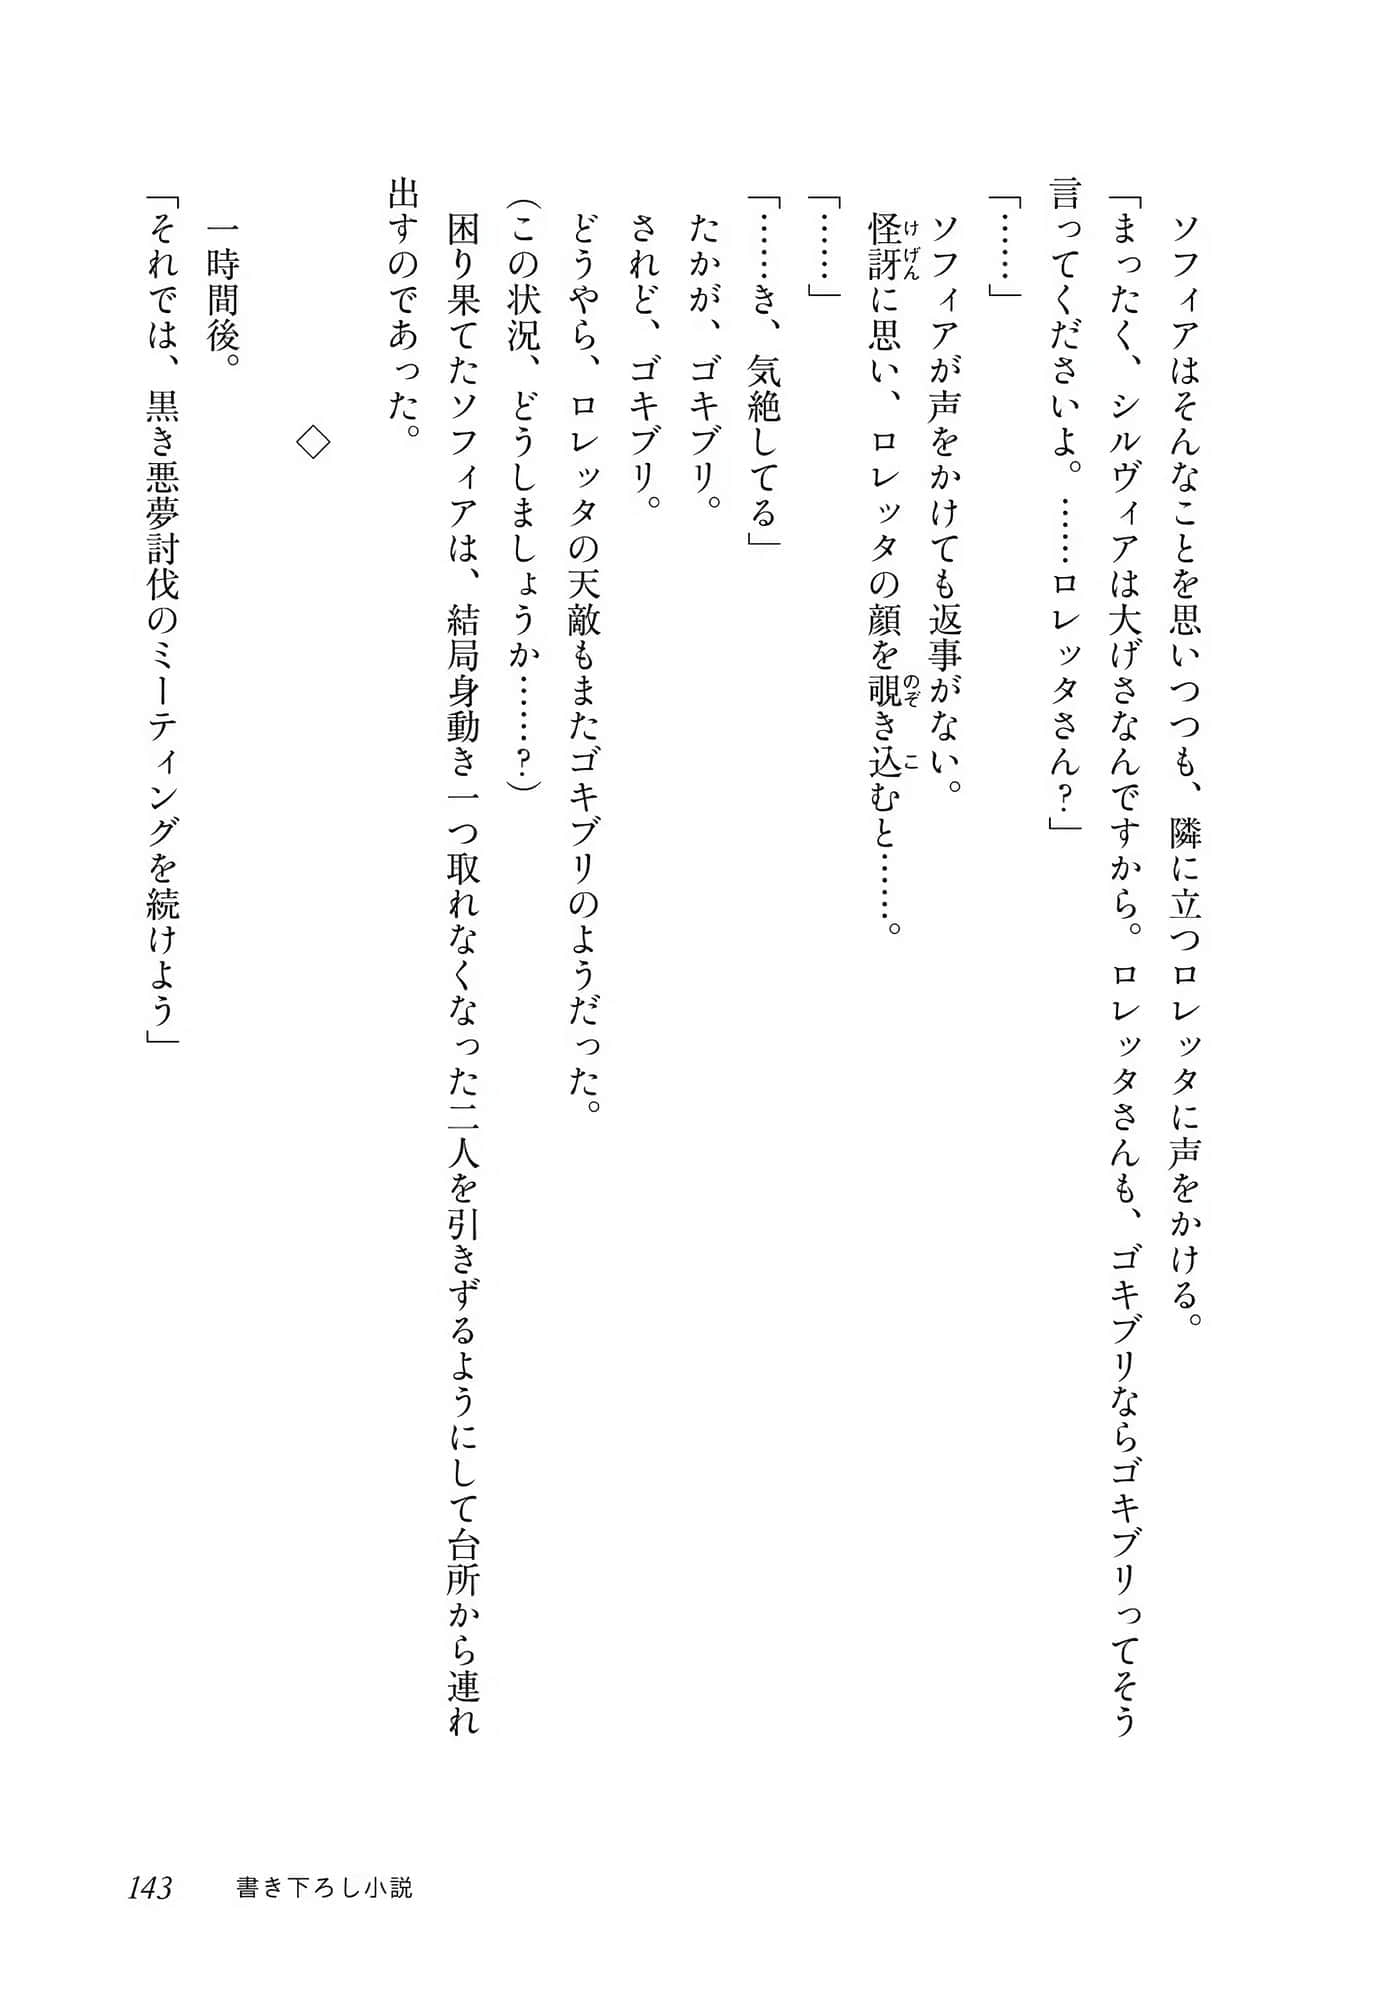 ソフィアはそんなことを思いつつも、隣に立つロレッタに声をかける。
「まったく、シルヴィアは大げさなんですから。ロレッタさんも、ゴキブリならゴキブリってそう
言ってくださいよ。……ロレッタさん？」
「……」
ソフィアが声をかけても返事がない。
怪訝に思い、ロレッタの顔を覗き込むと……。
「……」
「……き、気絶してる」
たかが、ゴキブリ。
されど、ゴキブリ。
どうやら、ロレッタの天敵もまたゴキブリのようだった。
（この状況、どうしましょうか……？）
困り果てたソフィアは、結局身動き一つ取れなくなった二人を引きずるようにして台所から連れ
出すのであった。
◇
一時間後。
「それでは、黒き悪夢討伐のミーティングを続けよう」
143 書き下ろし小説